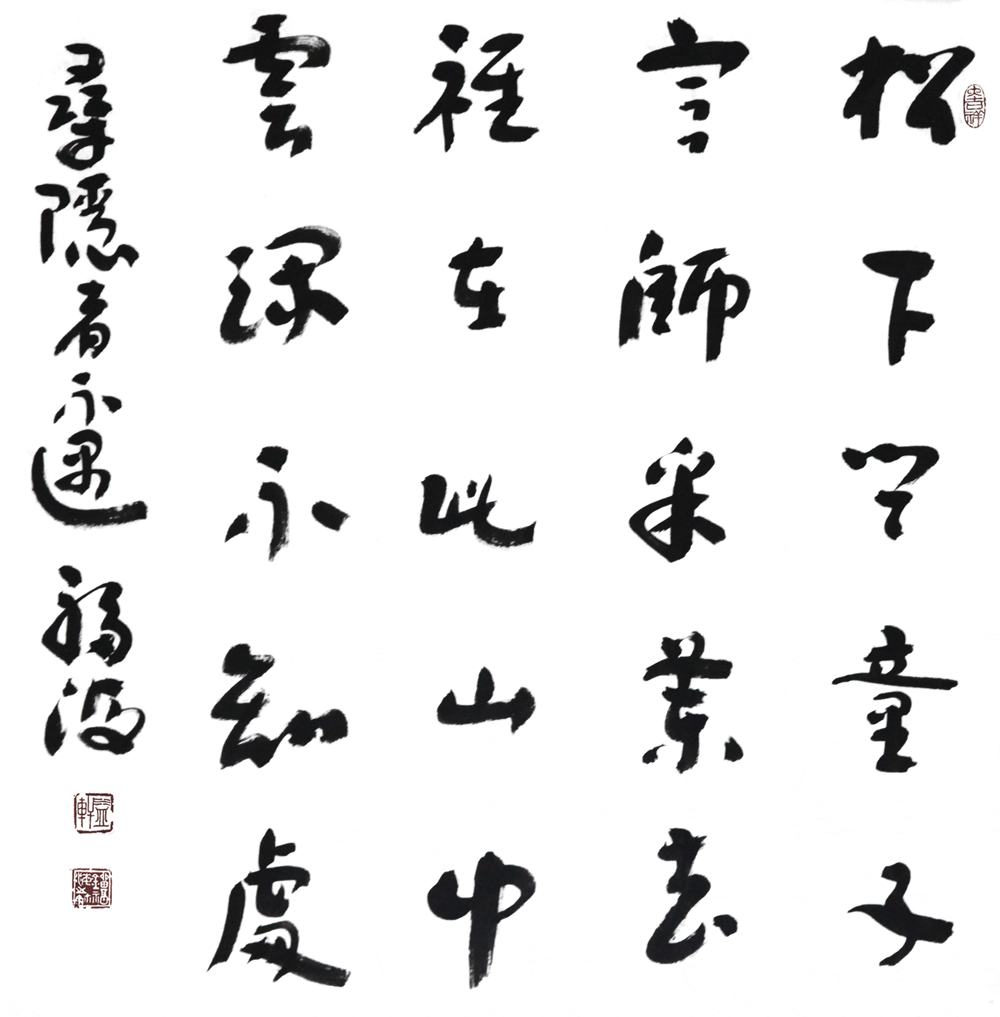 松下問童子
言師采藥去
祗在此山中
雲深不知處
尋隱者不遇
福